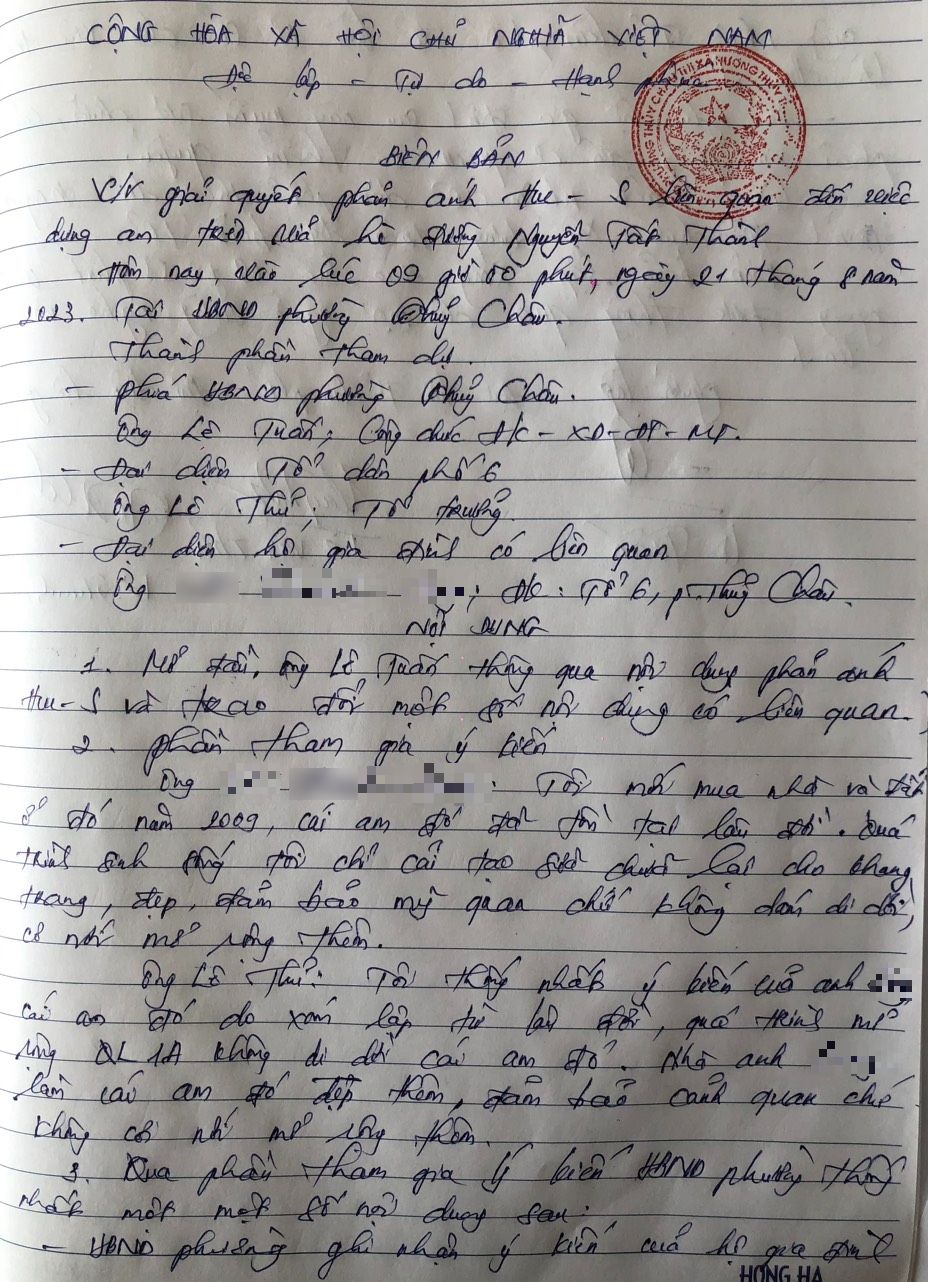 CỘNG HÒA XÃ HỘI CHỦ NGHĨA VIỆT NAM
Độc lập - Tự do - Hạnh phúc
BIÊN BẢN
V/v giải quyết phản anh Hue - S liên quan đến việc
dựng am trên vỉa hè đường Nguyễn Tất Thành
Hôm nay, vào lúc 09 giờ 00 phút, ngày 21 tháng 8 năm
2023. Tại UBND phường Thủy Châu.
Thành phần tham dự.
- Phía UBND phường Thủy Châu.
Ông Lê Tuấn; Công chức ĐC - XD - ĐT - MT.
- Đại diện Tổ dân phố 6
Ông Lê Thử; Tổ trưởng.
- Đại diện hộ gia đình có liên quan
Ông ; ĐC: Tổ 6, p. Thủy Châu.
NỘI DUNG
1. Mở đầu, ông Lê Tuấn thông qua nội dung phản ánh
Hue-S và trao đổi một số nội dung có liên quan.
2. Phần tham gia ý kiến
Ông : Tôi mới mua nhà và đất
ở đó năm 2009, cái am đó đã tồn tại lâu đời. Quá
trình sinh sống tôi chỉ cải tạo sửa chữa lại cho khang
trang, đẹp, đảm bảo mỹ quan chứ không dám di dời,
cơi nới mở rộng thêm.
Ông Lê Thử: Tôi thống nhất ý kiến của anh
cái am đó do xóm lập từ lâu đời, quá trình mở
rộng QL 1A không di dời cái am đó. Nhờ anh
làm cái am đó đẹp thêm, đảm bảo cảnh quan chứ
không cơi nới mở rộng thêm.
3. Qua phần tham gia ý kiến UBND phường thống
nhất một một số nội dung sau:
- UBND phường ghi nhận ý kiến của hộ gia đình
HỒNG HÀ